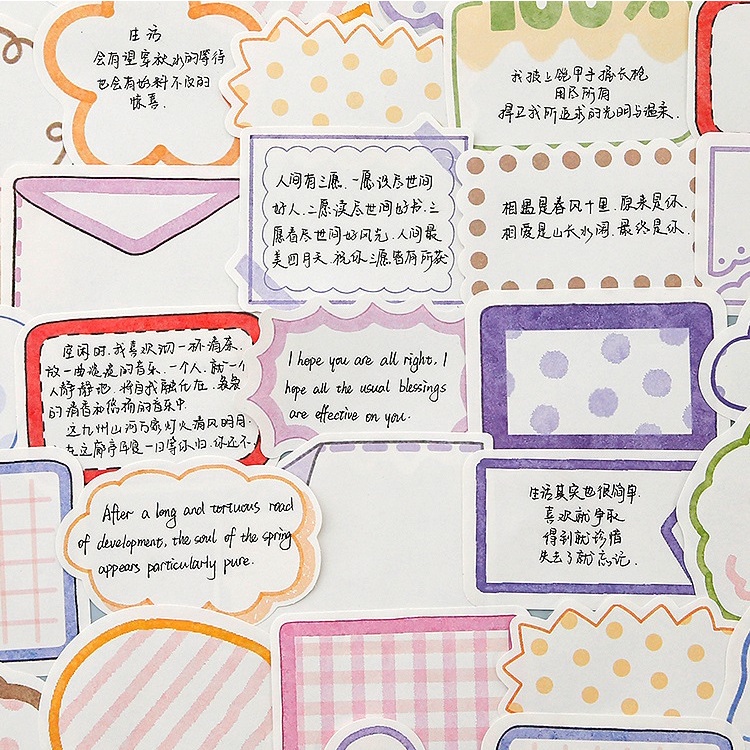 生活
会有望穿秋水的等待
也会有始料不及的
惊喜.
100%
我披上铠甲手握长枪
用尽所有
捍卫我所追求的光明与温柔.
人间有三愿.一愿识尽世间
好人.二愿读尽世间好书.三
愿看尽世间好风光.人间最
美四月天.祝你三愿皆有所获
相遇是春风十里.原来是你.
相爱是山长水阔.最终是你.
空闲时.我喜欢沏一杯清茶.
放一曲悠远的音乐.一个人.就一个
人静静地.将自我融化在.袅袅
的清香和悠扬的音乐中.
这九州山河万家灯火清风明月.
在这廊亭 一日等你归.你还不
I hope you are all right. I
hope all the usual blessings
are effective on you.
After a long and tortuous road
of development, the soul of the spring
appears particularly pure.
生活其实也很简单.
喜欢就争取
得到就珍惜
失去了就忘记.